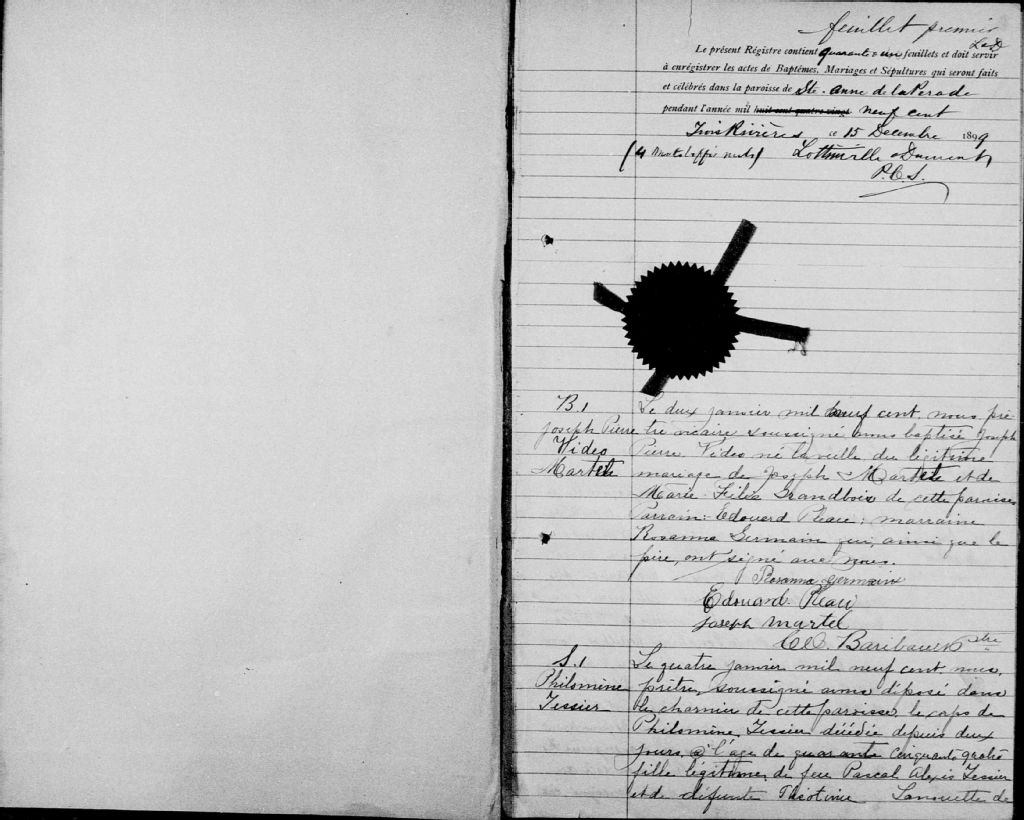 feuillet premier
L & D
Le présent Régistre contient quarante & un feuillets et doit servir
à enrégistrer les actes de Baptêmes, Mariages et Sépultures qui seront faits
et célébrés dans la paroisse de Ste. Anne de la Perade
pendant l'année mil huit cent quatre-vingt neuf cent
Trois Rivières ce 15 Decembre 1899
(4 mots nuls)
P.C.S.
B. 1
Joseph Pierre
Video
Martel
Le deux janvier mil neuf cent, nous prê-
tre vicaire soussigné avons baptisé Joseph
Pierre Video né la veille du légitime
mariage de Joseph Martel et de
Marie Grandbois de cette paroisse
Parrain: Edouard Pleau; marraine
Rosanna Germain qui, ainsi que le
père, ont signé avec nous.
Rosanna germain
Edouard Pleau
Joseph Martel
Baribault Ptre
S. 1
Philomène
Tessier
Le quatre janvier mil neuf cent, nous,
prêtre, soussigné avons déposé dans
le charnier de cette paroisse, le corps de
Philomène Tessier décédée depuis deux
jours à l'age de quarante cinquante-quatre
fille légitime de feu Pascal Alexis Tessier
et de défunte Lanouette de